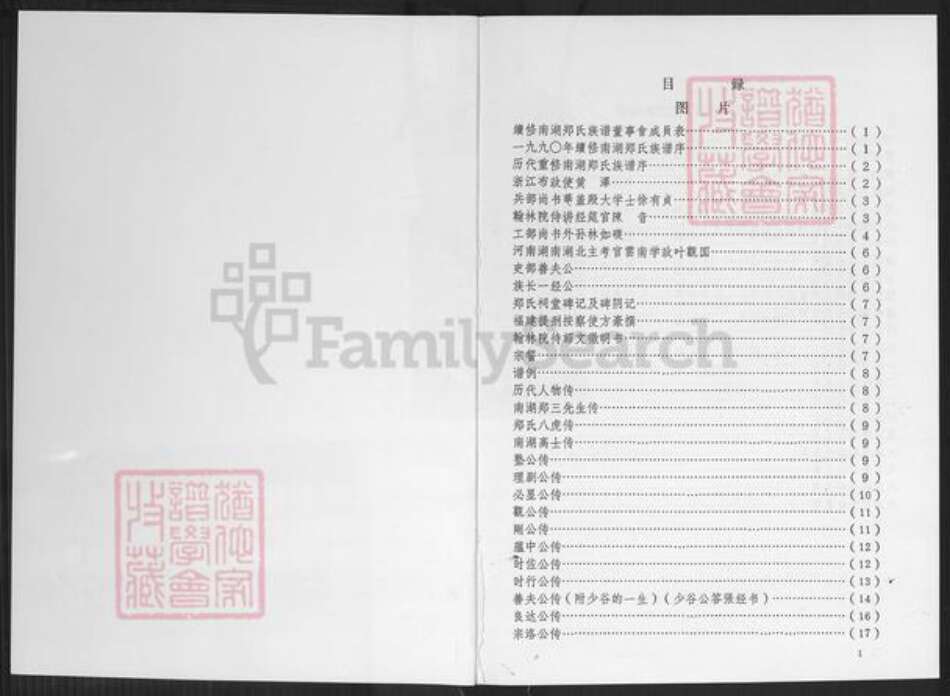 目　　録
图　片
續修南湖郑氏族谱董事會成員表……(1)
一九九〇年續修南湖郑氏族谱序……(1)
历代重修南湖郑氏族谱序……(2)
浙江布政使黄　澤……(2)
兵部尚书華盖殿大学士徐有貞……(3)
翰林院侍讲经筵官陳　音……(3)
工部尚书外孙林如……(4)
河南湖南湖北主考官雲南学政叶觀国……(6)
吏部善夫公……(6)
族长一经公……(6)
郑氏祠堂碑记及碑阴记……(7)
福建提刑按察使方豪撰……(7)
翰林院待詔文徵明书……(7)
宗誓……(7)
谱例……(8)
历代人物传……(8)
南湖郑三先生传……(8)
郑氏八虎传……(9)
南湖高士传……(9)
塾公传……(9)
理副公传……(9)
必昱公传……(10)
觀公传……(11)
剛公传……(11)
蕴中公传……(12)
时佐公传……(12)
时行公传……(13)
善夫公传(附少谷的一生)(少谷公答張经书)……(14)
良达公传……(16)
宗洛公传……(17)
1
FamilySearch
猶他家譜學會收藏
猶他家譜學會收藏